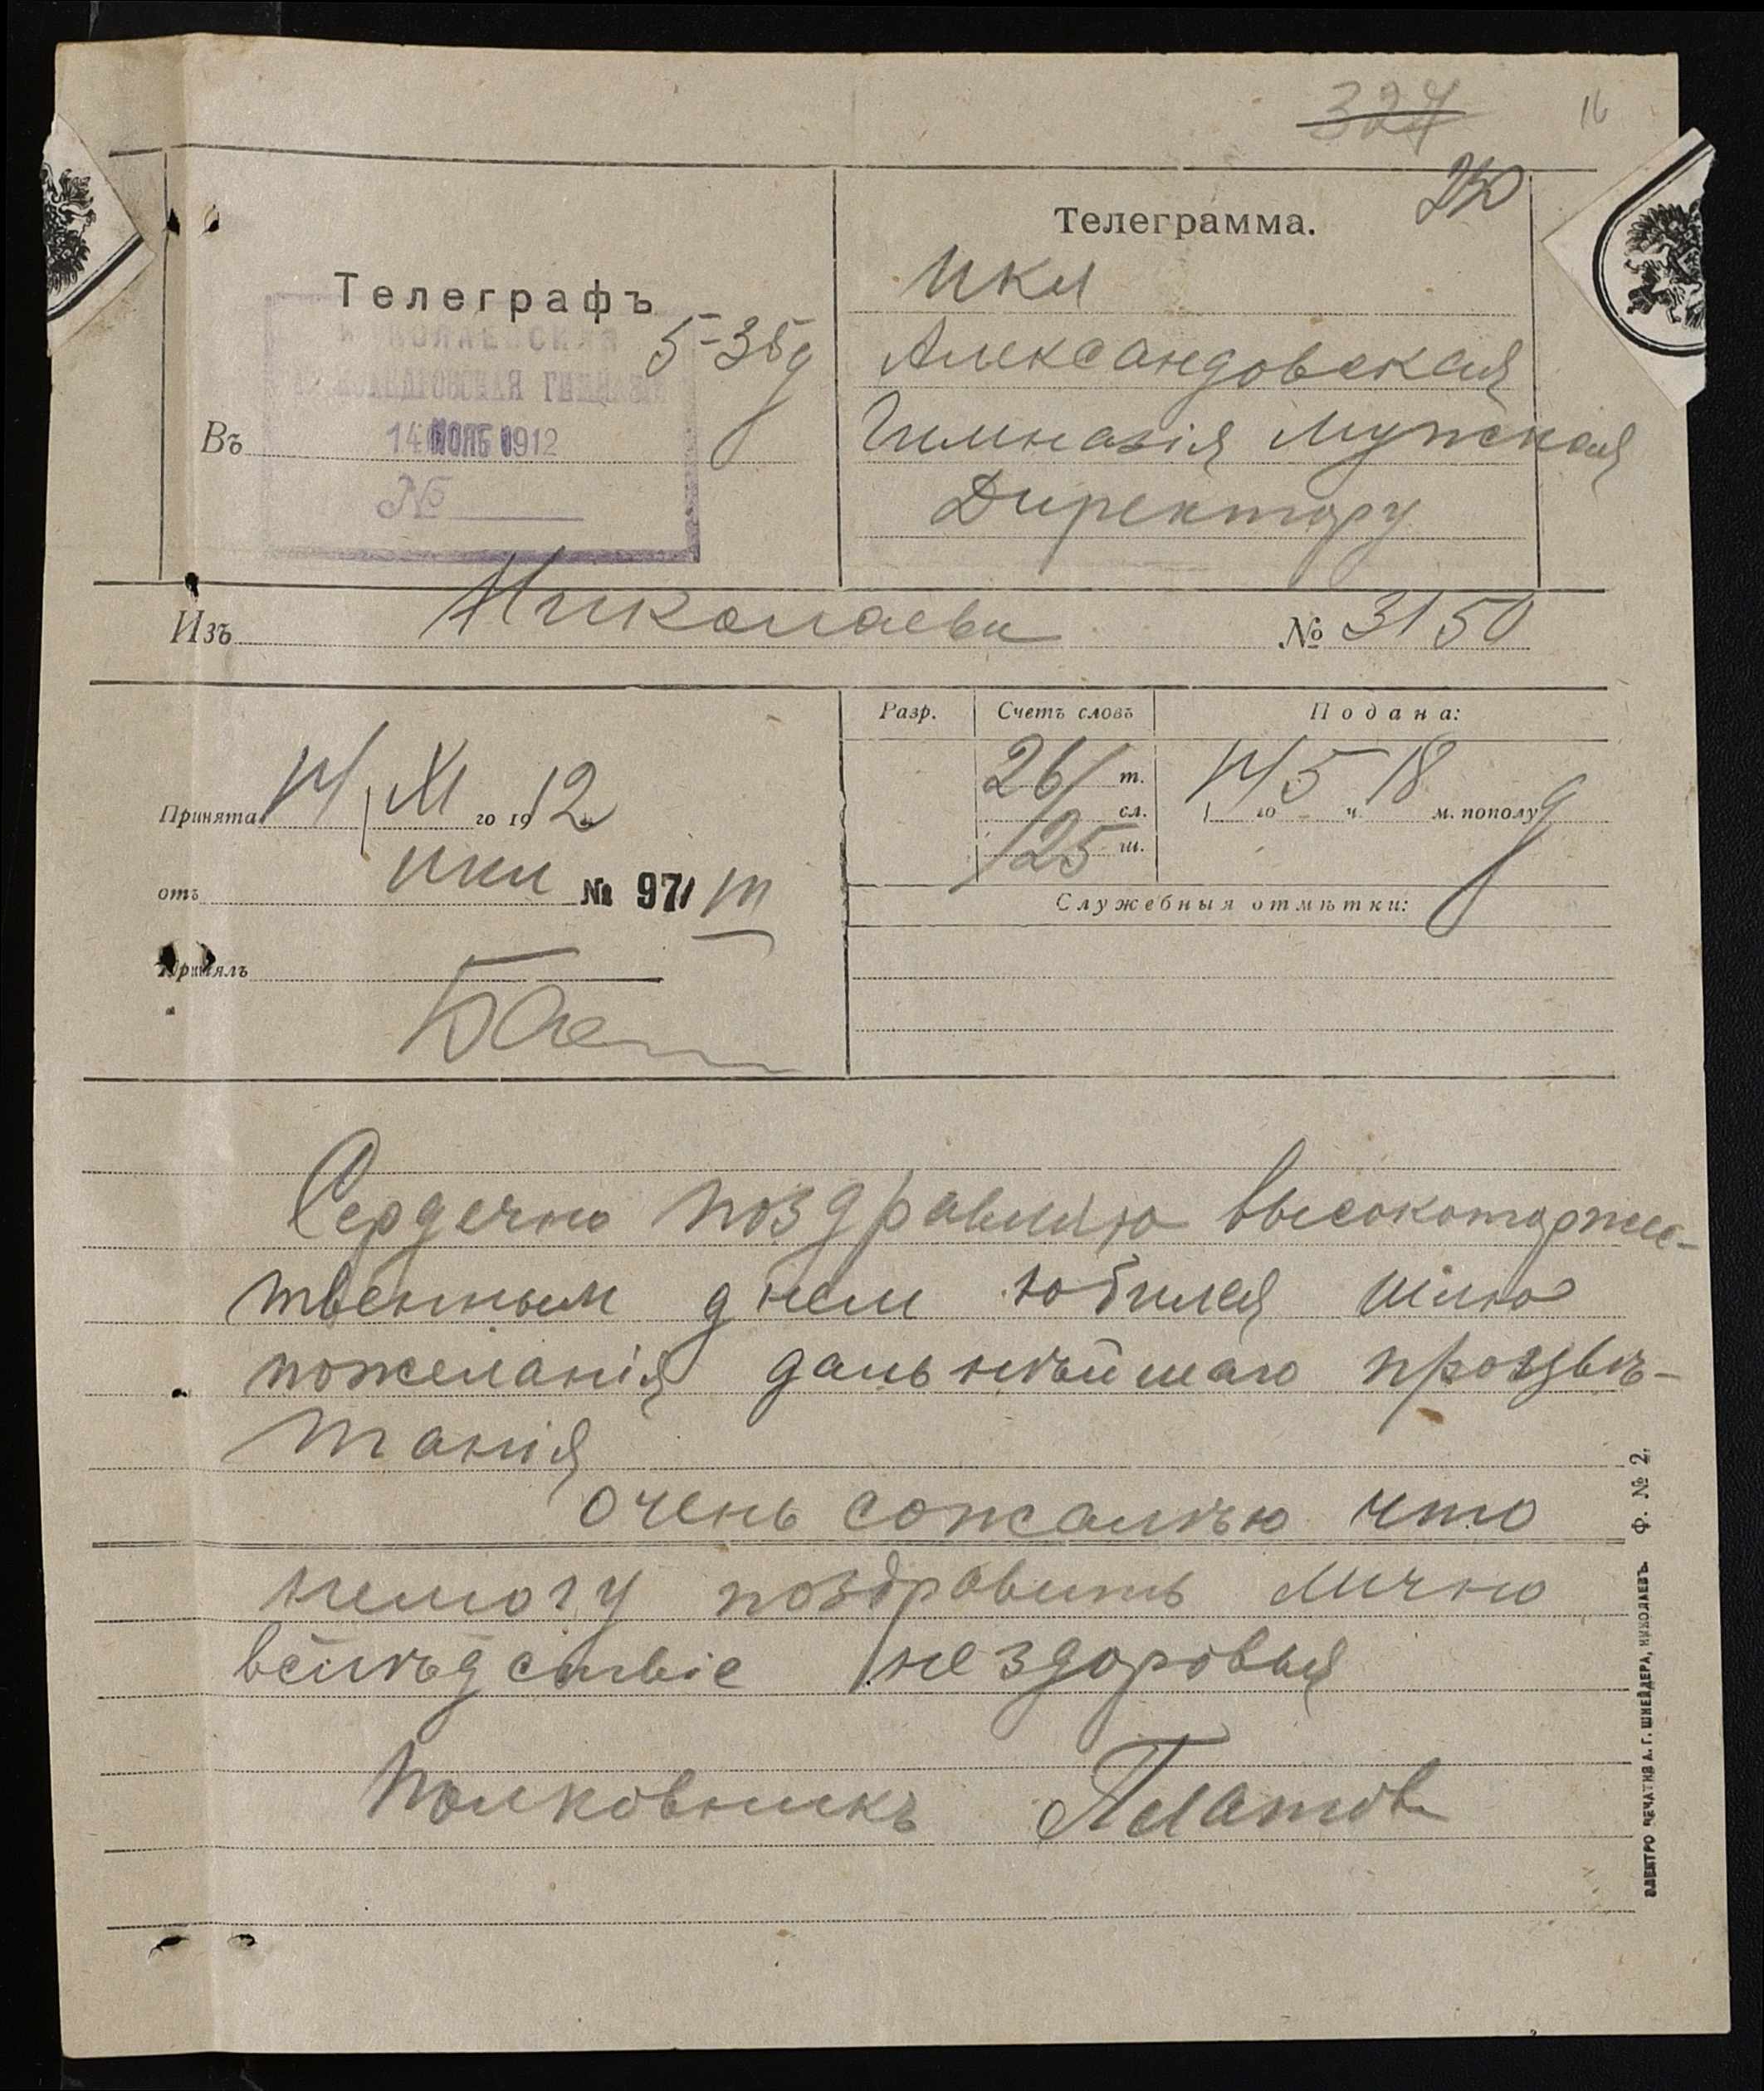 327
16
250
Телеграмма.
Телеграфъ
5-35 д
НИКОЛАЕВСКАЯ
АЛЕКСАНДРОВСКАЯ ГИМНАЗІЯ
Въ
14 НОЯБ 1912
№
Нкл
Александовская
Гимназія Мужская
Директору
Изъ Николаева № 3150
Разр. Счетъ словъ Подана:
26/ т. 14/ го 5 ч. 18 м. пополу д
сл.
/25 ш.
Принята 14/XI го 1912
отъ нкл № 971
Принялъ
Служебныя отмѣтки:
Сердечно поздравляю высокоторже-
твенным днем юбилея шлю
пожеланія дальнѣйшаго процвѣ-
танія
очень сожалѣю что
немогу поздравить лично
вслѣдствіе нездоровья
Полковникъ Платов
ЭЛЕКТРО ПЕЧАТНЯ А. Г. ШНЕЙДЕРА, НИКОЛАЕВЪ. Ф. № 2.